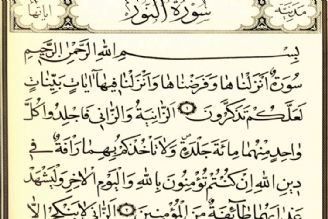 مدنية سُورَةُ النُّورِ آياتها
بِسْمِ اللهِ الرَّحْمٰنِ الرَّحِيمِ
سُورَةٌ أَنْزَلْنَاهَا وَفَرَضْنَاهَا وَأَنْزَلْنَا فِيهَا آيَاتٍ بَيِّنَاتٍ
لَعَلَّكُمْ تَذَكَّرُونَ ۝ الزَّانِيَةُ وَالزَّانِي فَاجْلِدُوا كُلَّ
وَاحِدٍ مِنْهُمَا مِائَةَ جَلْدَةٍ وَلَا تَأْخُذْكُمْ بِهِمَا رَأْفَةٌ فِي
دِينِ اللهِ إِنْ كُنْتُمْ تُؤْمِنُونَ بِاللهِ وَالْيَوْمِ الْآخِرِ وَلْيَشْهَدْ
عَذَابَهُمَا طَائِفَةٌ مِنَ الْمُؤْمِنِينَ ۝ الزَّانِي لَا يَنْكِحُ إِلَّا